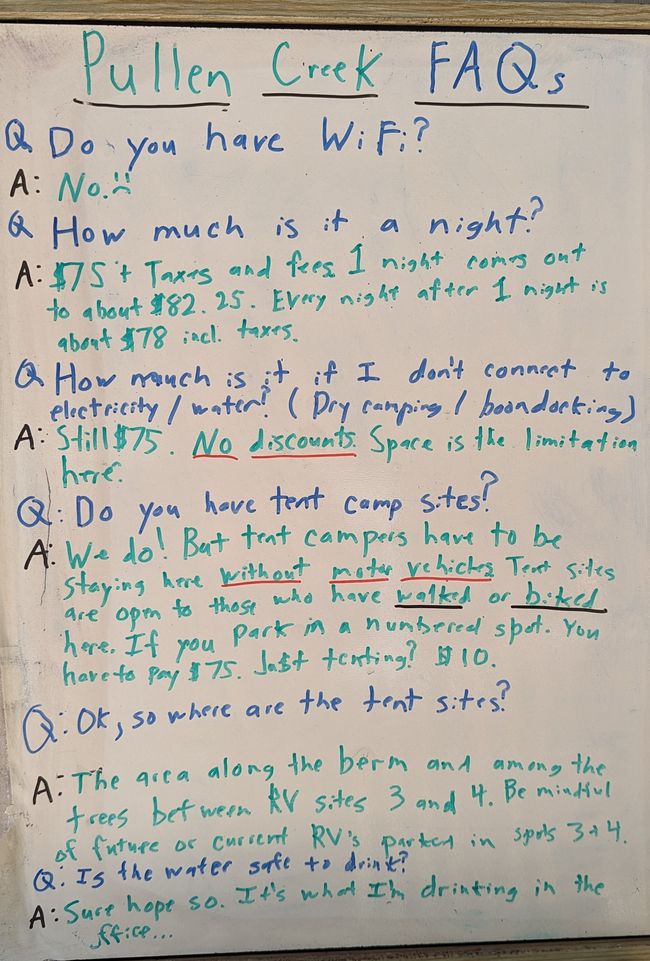 Pullen Creek FAQs
Q Do you have WiFi?
A: No. :(
Q How much is it a night?
A: $75 + Taxes and fees 1 night comes out
to about $82.25. Every night after 1 night is
about $78 incl. taxes.
Q How much is it if I don't connect to
electricity/water? (Dry camping / boondocking)
A: Still $75. No discounts. Space is the limitation
here.
Q: Do you have tent camp sites?
A: We do! But tent campers have to be
staying here without motor vehicles. Tent sites
are open to those who have walked or biked
here. If you park in a numbered spot. You
have to pay $75. Just tenting? $10.
Q: Ok, so where are the tent sites?
A: The area along the berm and among the
trees between RV sites 3 and 4. Be mindful
of future or current RV's parked in spots 3+4.
Q: Is the water safe to drink?
A: Sure hope so. It's what I'm drinking in the
office...